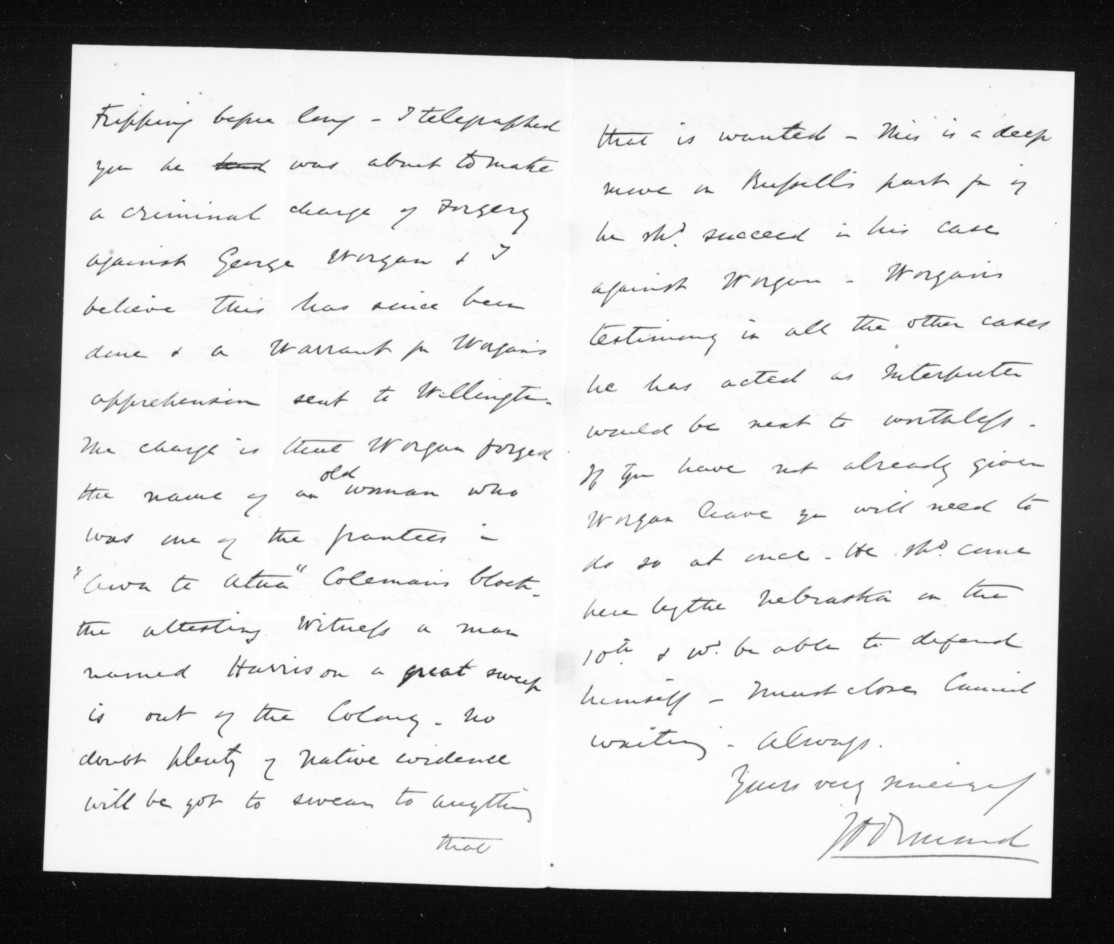 Tripping before long - I telegraphed
you he was about to make
a criminal charge of Forgery
against George Worgan & I
believe this has since been
done & a Warrant for Worgan's
apprehension sent to Wellington.
The charge is that Worgan forged
the name of an old woman who
was one of the grantees in
"Awa te Atua" Coleman's block.
the attesting Witness a man
named Harrison a great sweep
is out of the Colony - no
doubt plenty of native evidence
will be got to swear to anything
that
that is wanted - This is a deep
move on Russell's part for if
he shd. succeed in his case
against Worgan - Worgan's
testimony in all the other cases
he has acted as Interpreter
would be next to worthless.
If you have not already given
Worgan leave you will need to
do so at once - He shd. come
here by the Nebraska on the
10th & wd. be able to defend
himself - I must close Council
waiting - Always.
Yours very sincerely
JD Ormond